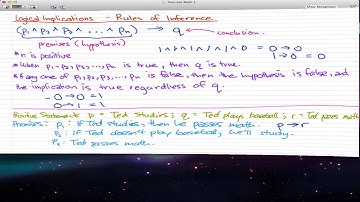 Logical Implications - Rules of Inference
(p₁ ∧ p₂ ∧ p₃ ∧ .... ∧ pₙ) → q
conclusion.
premises (hypothesis)
1∧1∧1∧1∧0 = 0→0
*n is positive
1→0 = 0
*When p₁, p₂, p₃, ..., pₙ is true, then q is true.
*If any one of p₁, p₂, p₃, ..., pₙ is false, then the hypothesis is false, and
the implication is true regardless of q.
- 0→0 = 1
- 0→1 = 1
Primitive Statements p = Ted Studies; q = Ted plays baseball; r = Ted passes math
Premises: p₁: If Ted studies, then he passes math. p→r
p₂: If Ted doesn't play baseball, he'll study.
p₃: Ted passes math.